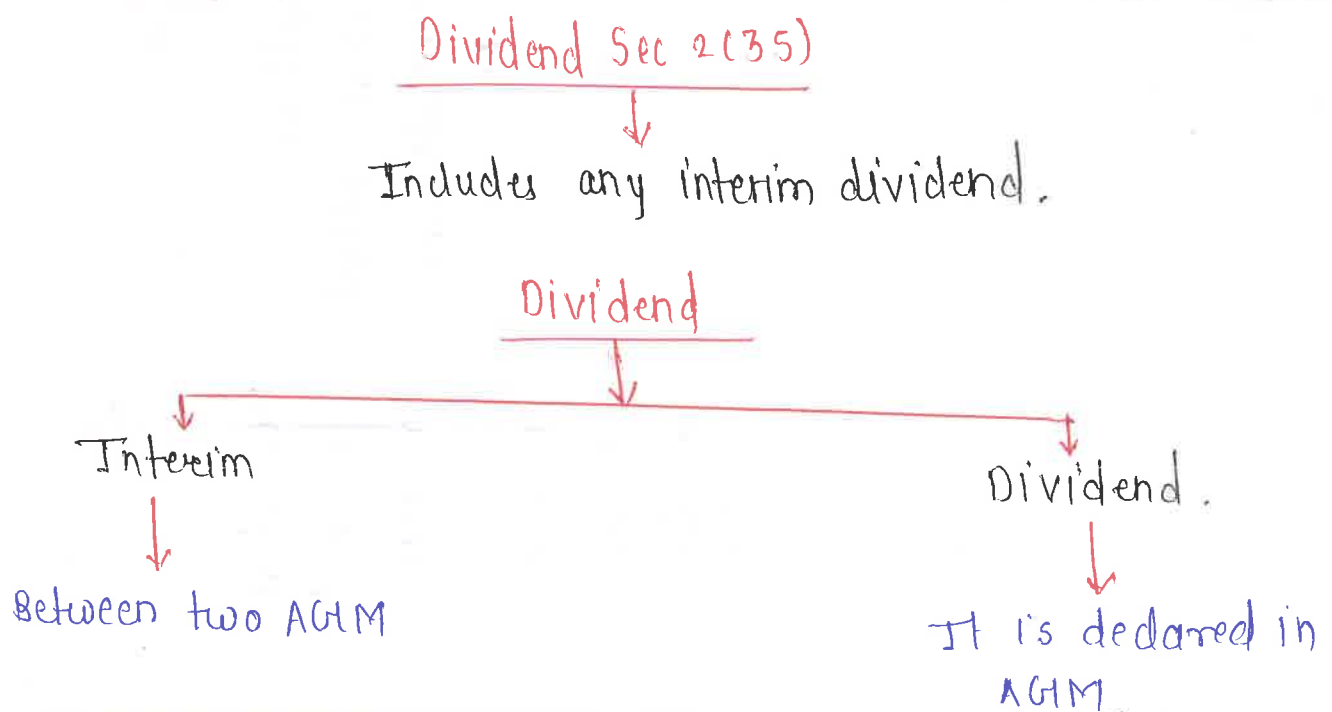 Dividend Sec 2(35)
Includes any interim dividend.
Dividend
Interim
Dividend.
Between two AGM
It is declared in
AGM